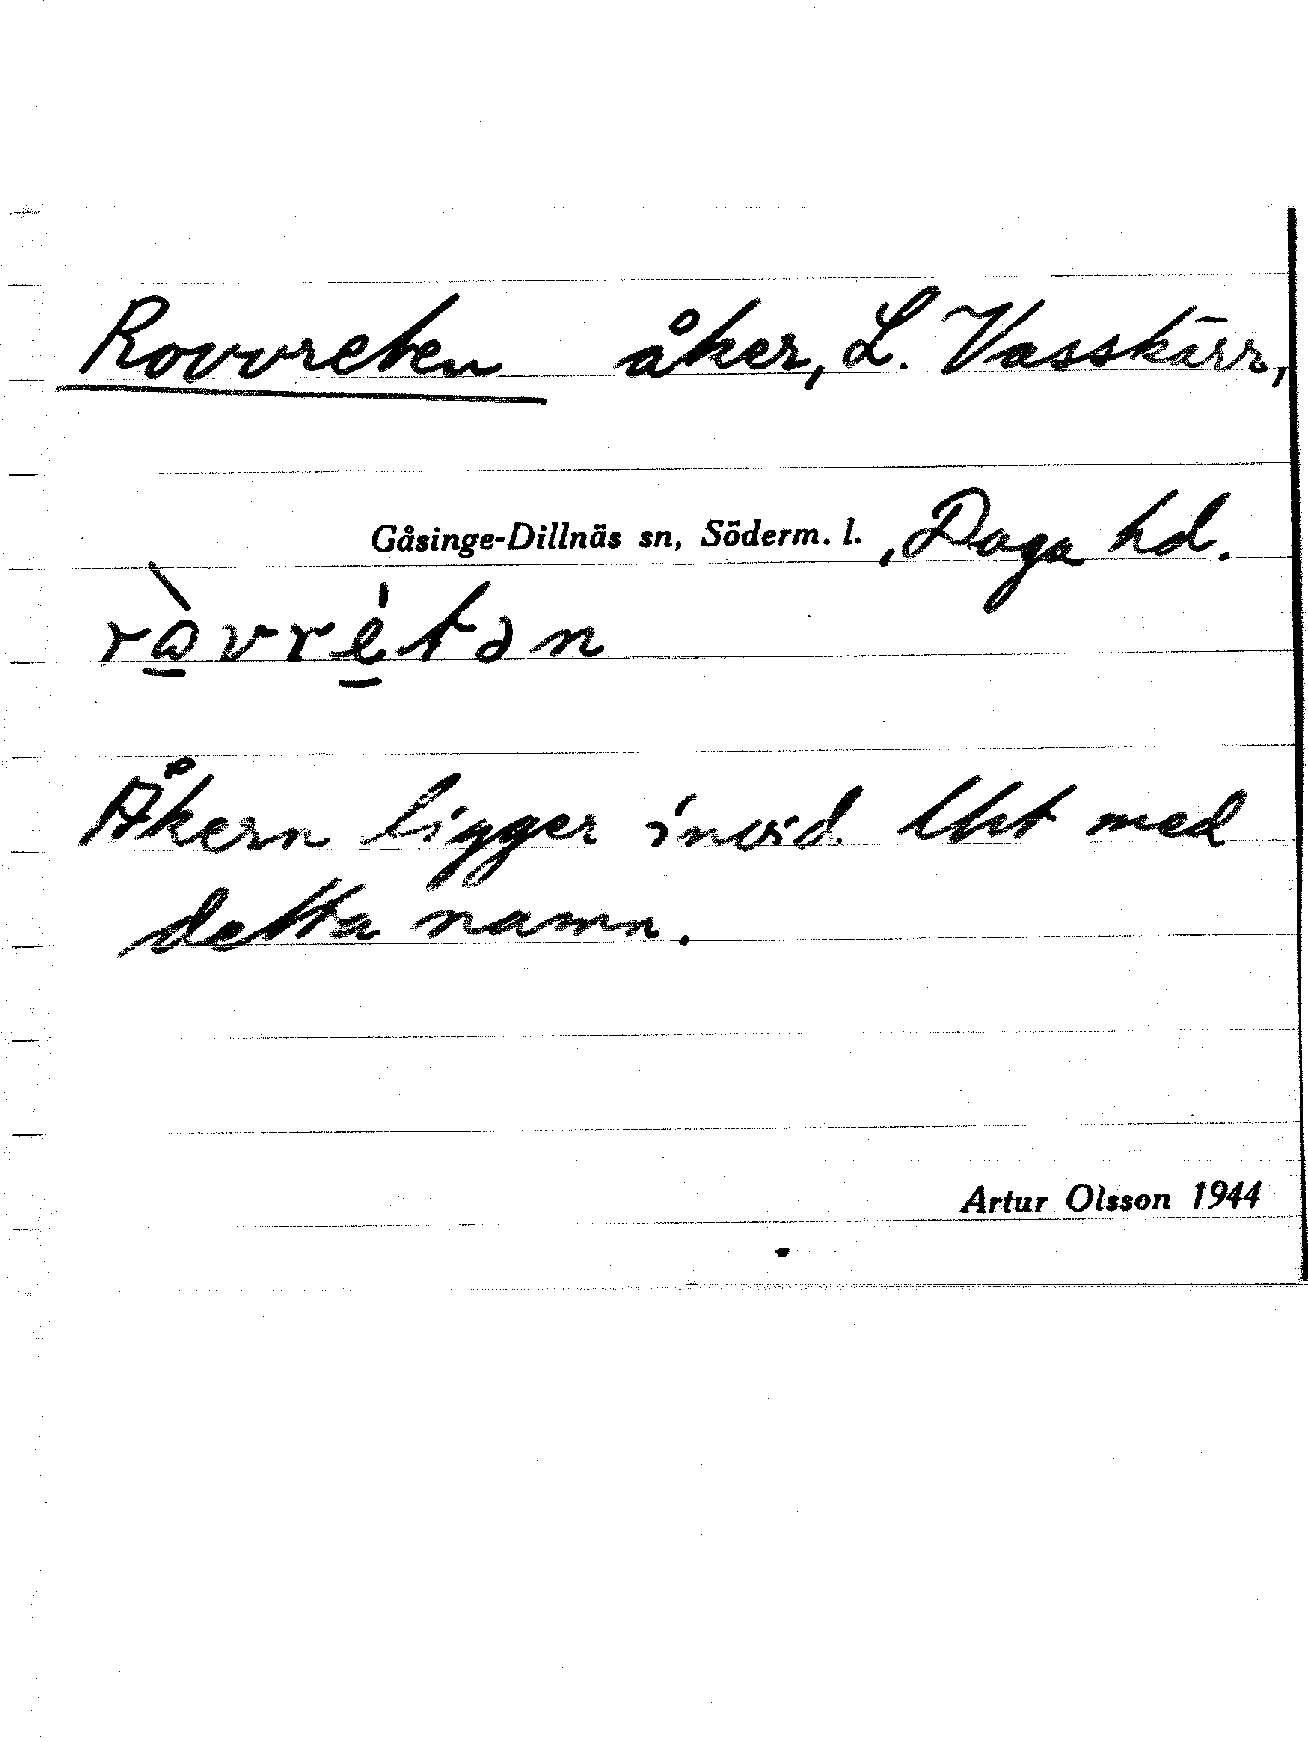 Rovvreten åker, L. Vasskärr,
Gåsinge-Dillnäs sn, Söderm. l., Daga hd.
rὼvrétən
Åkern ligger invid lht med
detta namn.
Artur Olsson 1944